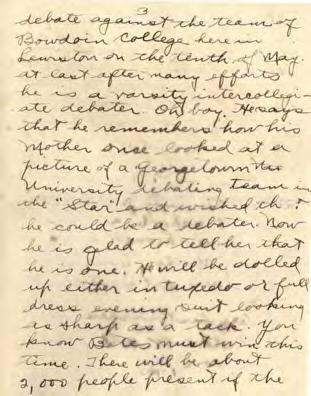 3
debate against the team of
Bowdoin College here in
Lewiston on the tenth of May.
at last after many efforts
he is a varsity intercollegi-
ate debater. Oh boy. He says
that he remembers how his
Mother once looked at a
picture of a Georgetown
University debating team in
the "Star" and wished that
he could be a debater. Now
he is glad to tell her that
he is one. He will be dolled
up either in tuxedo or full
dress evening suit looking
as sharp as a tack. You
know Bates must win this
time. There will be about
2,000 people present if the